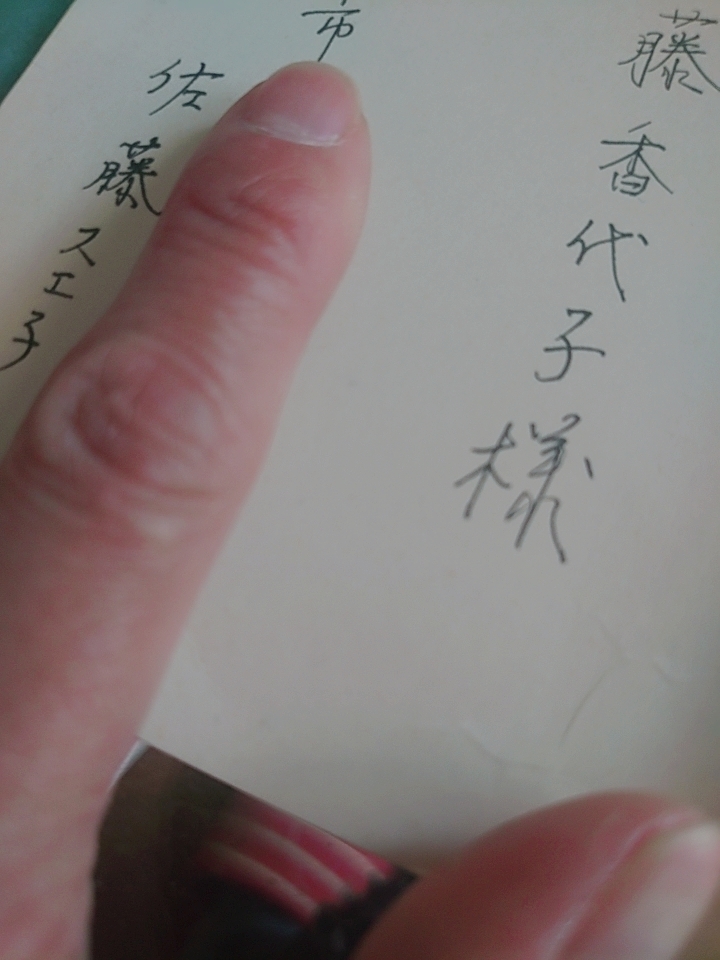 藤香代子様
市
佐藤スエ子